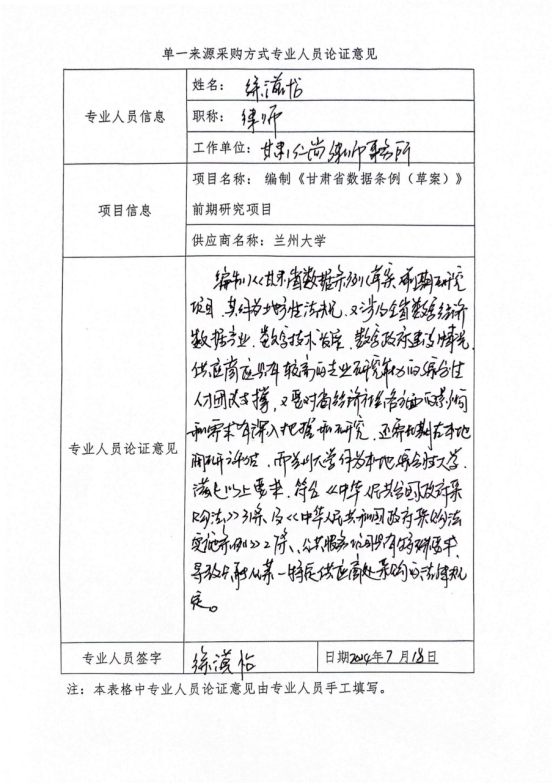 单一来源采购方式专业人员论证意见
专业人员信息
姓名：徐滋
职称：律师
工作单位：甘肃仁尚律师事务所
项目信息
项目名称：编制《甘肃省数据条例（草案）》
前期研究项目
供应商名称：兰州大学
专业人员论证意见
编制《甘肃省数据条例（草案）前期研究
项目，其作为地方性法规，又涉及全省数字经济
数据产业、数字技术发展、数字政府建设情况，
供应商应具有较高的专业研究能力的综合性
人才团队支撑，又要对省经济社会各方面的
和需求有深入把握和研究，还需长期在本地
开展，而兰州大学作为本地综合性大学，
满足以上要求，符合《中华人民共和国政府采
购法》31条及《中华人民共和国政府采购法
实施条例》27条、公共服务项目具有特殊要求，
导致只能从某一特定供应商处采购的法律规
定。
专业人员签字
徐滋
日期2024年7月18日
注：本表格中专业人员论证意见由专业人员手工填写。